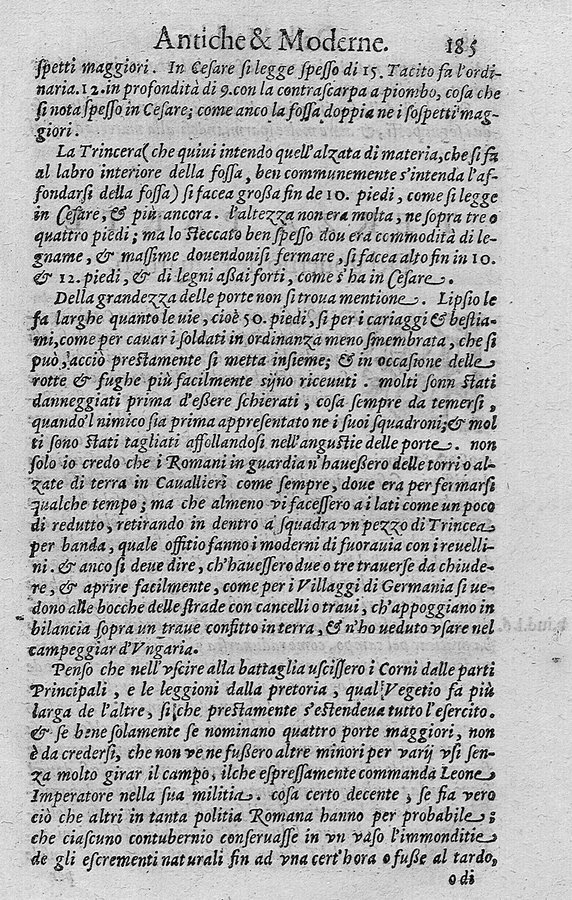 Antiche & Moderne. 185
spetti maggiori. In Cesare si legge spesso di 15. Tacito fa l'ordi-
naria. 12. in profondità di 9. con la contrascarpa a piombo, cosa che
si nota spesso in Cesare; come anco la fossa doppia ne i sospetti mag-
giori.
La Trincera (che quivi intendo quell'alzata di materia, che si fa
al labro interiore della fossa, ben communemente s'intenda l'af-
fondarsi della fossa) si facea großa fin de 10. piedi, come si legge
in Cesare, & più ancora. l'altezza non era molta, ne sopra tre o
quattro piedi; ma lo steccato ben spesso dov era commodità di le-
gname, & massime douendouisi fermare, si facea alto fin in 10.
& 12. piedi, & di legni aßai forti, come s'ha in Cesare.
Della grandezza delle porte non si troua mentione. Lipsio le
fa larghe quanto le uie, cioè 50. piedi, si per i cariaggi & bestia-
mi, come per cauar i soldati in ordinanza meno smembrata, che si
può, acciò prestamente si metta insieme; & in occasione delle
rotte & fughe più facilmente sijno riceuuti. molti sonn stati
danneggiati prima d'eßere schierati, cosa sempre da temersi,
quando'l nimico sia prima appresentato ne i suoi squadroni; & mol
ti sono stati tagliati affollandosi nell'angustie delle porte. non
solo io credo che i Romani in guardia n'haueßero delle torri o al-
zate di terra in Cauallieri come sempre, doue era per fermarsi
qualche tempo; ma che almeno vi facessero a i lati come un poco
di redutto, retirando in dentro a squadra vn pezzo di Trincea
per banda, quale offitio fanno i moderni di fuorauia con i reuelli-
ni. & anco si deue dire, ch'hauessero due o tre trauerse da chiude-
re, & aprire facilmente, come per i Villaggi di Germania si ve-
dono alle bocche delle strade con cancelli o traui, ch'appoggiano in
bilancia sopra un traue confitto in terra, & n'ho veduto vsare nel
campeggiar d'Vngaria.
Penso che nell'vscire alla battaglia uscissero i Corni dalle parti
Principali, e le leggioni dalla pretoria, qual Vegetio fa più
larga de l'altre, si che prestamente s'estendeua tutto l'esercito.
& se bene solamente se nominano quattro porte maggiori, non
è da credersi, che non ve ne fußero altre minori per varij vsi sen-
za molto girar il campo, ilche espressamente commanda Leone
Imperatore nella sua militia. cosa certo decente, se fia vero
ciò che altri in tanta politia Romana hanno per probabile;
che ciascuno contubernio conseruasse in vn vaso l'immonditie
de gli escrementi naturali fin ad vna cert'hora o fuße al tardo,
o di